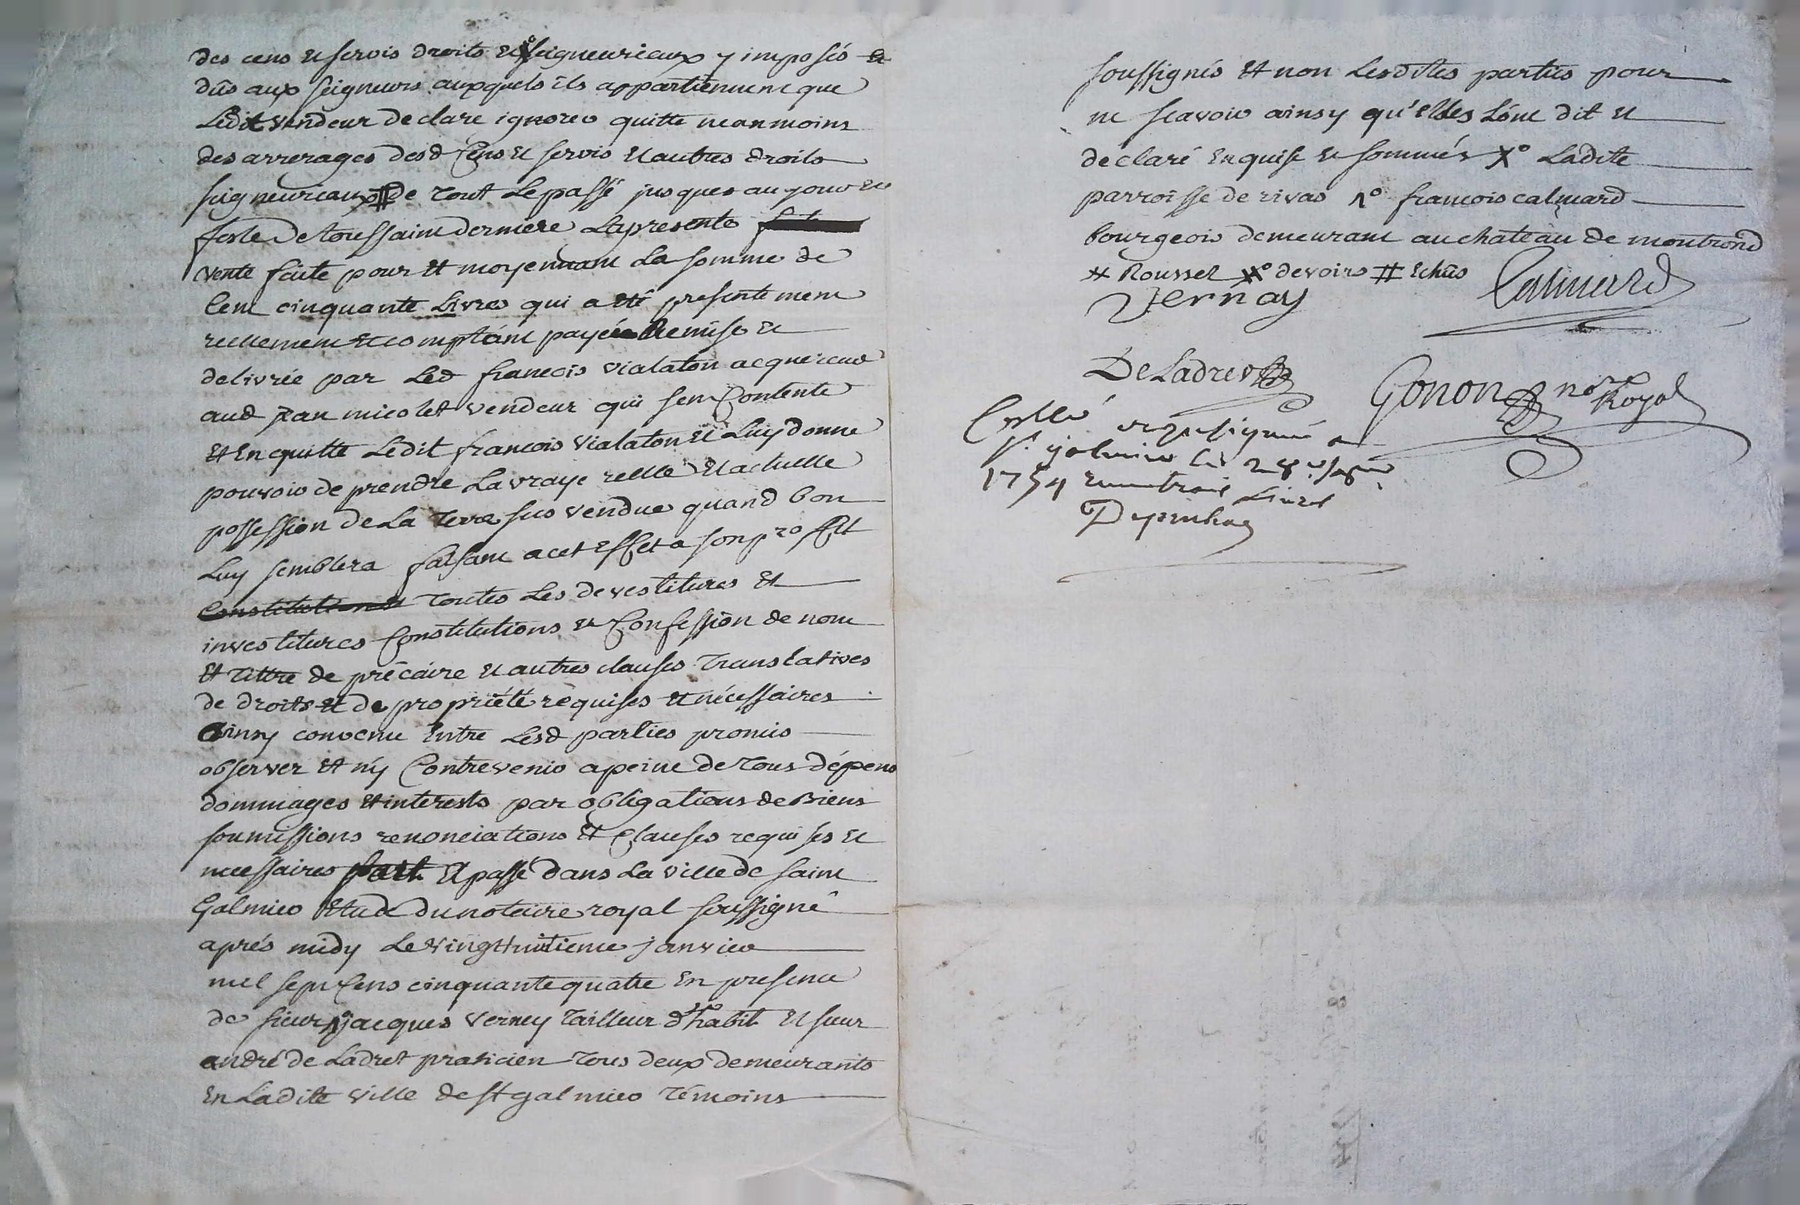 des cens et servis droits et X° seigneuriaux y imposés et
dûs aux seigneurs auxquels ils appartiennent que
Ledit vendeur declare ignorer quitte neanmoins
des arrerages desd cens et servis et autres droits
seigneuriaux # de tout Le passé jusques au jour et
feste de toussaint derniere La presente
vente faite pour et moyennant La somme de
Cent cinquante Livres qui a eté presentement
reellement et comptant payée Remise et
delivrée par Led francois vialaton acquereur
aud jean micolet vendeur qui sen Contente
et En quitte Ledit francois vialaton et Luy donne
pouvoir de prendre La vraye reelle et actuelle
possession de La terre sus vendue quand bon
Luy semblera faisant a cet effet a son proffit
Constitutions toutes Les devestitures et
investitures Constitutions et Confession de nom
et tittre de précaire et autres clauses translatives
de droits et de proprieté requises et nécessaires
Ainsy convenu Entre Lesd parties promis
observer et n'y Contrevenir a peine de tous dépens
dommages et interests par obligations de Biens
soumissions renonciations et Clauses requises et
necessaires fait et passé dans La ville de saint
Galmier Etude du notaire royal soussigné
aprés midy Le vingt huitieme janvier
mil sept Cens cinquante quatre En presence
de sieur 1° jacques verney tailleur d'habit et sieur
andré de Ladret praticien tous deux demeurants
En Ladite ville de st galmier témoins
soussignés et non Lesdites parties pour
ne scavoir ainsy qu'elles L'ont dit et
declaré Enquise et sommés X° Ladite
parroisse de rivas 1° francois calmard
bourgeois demeurant au chateau de montrond
# Rousset X° devoirs # Echus
Vernay
Calmard
De Ladret
Gonon nore Royal
Collé soussigné a
st galmier Le 28e janv
1754 trois Livres